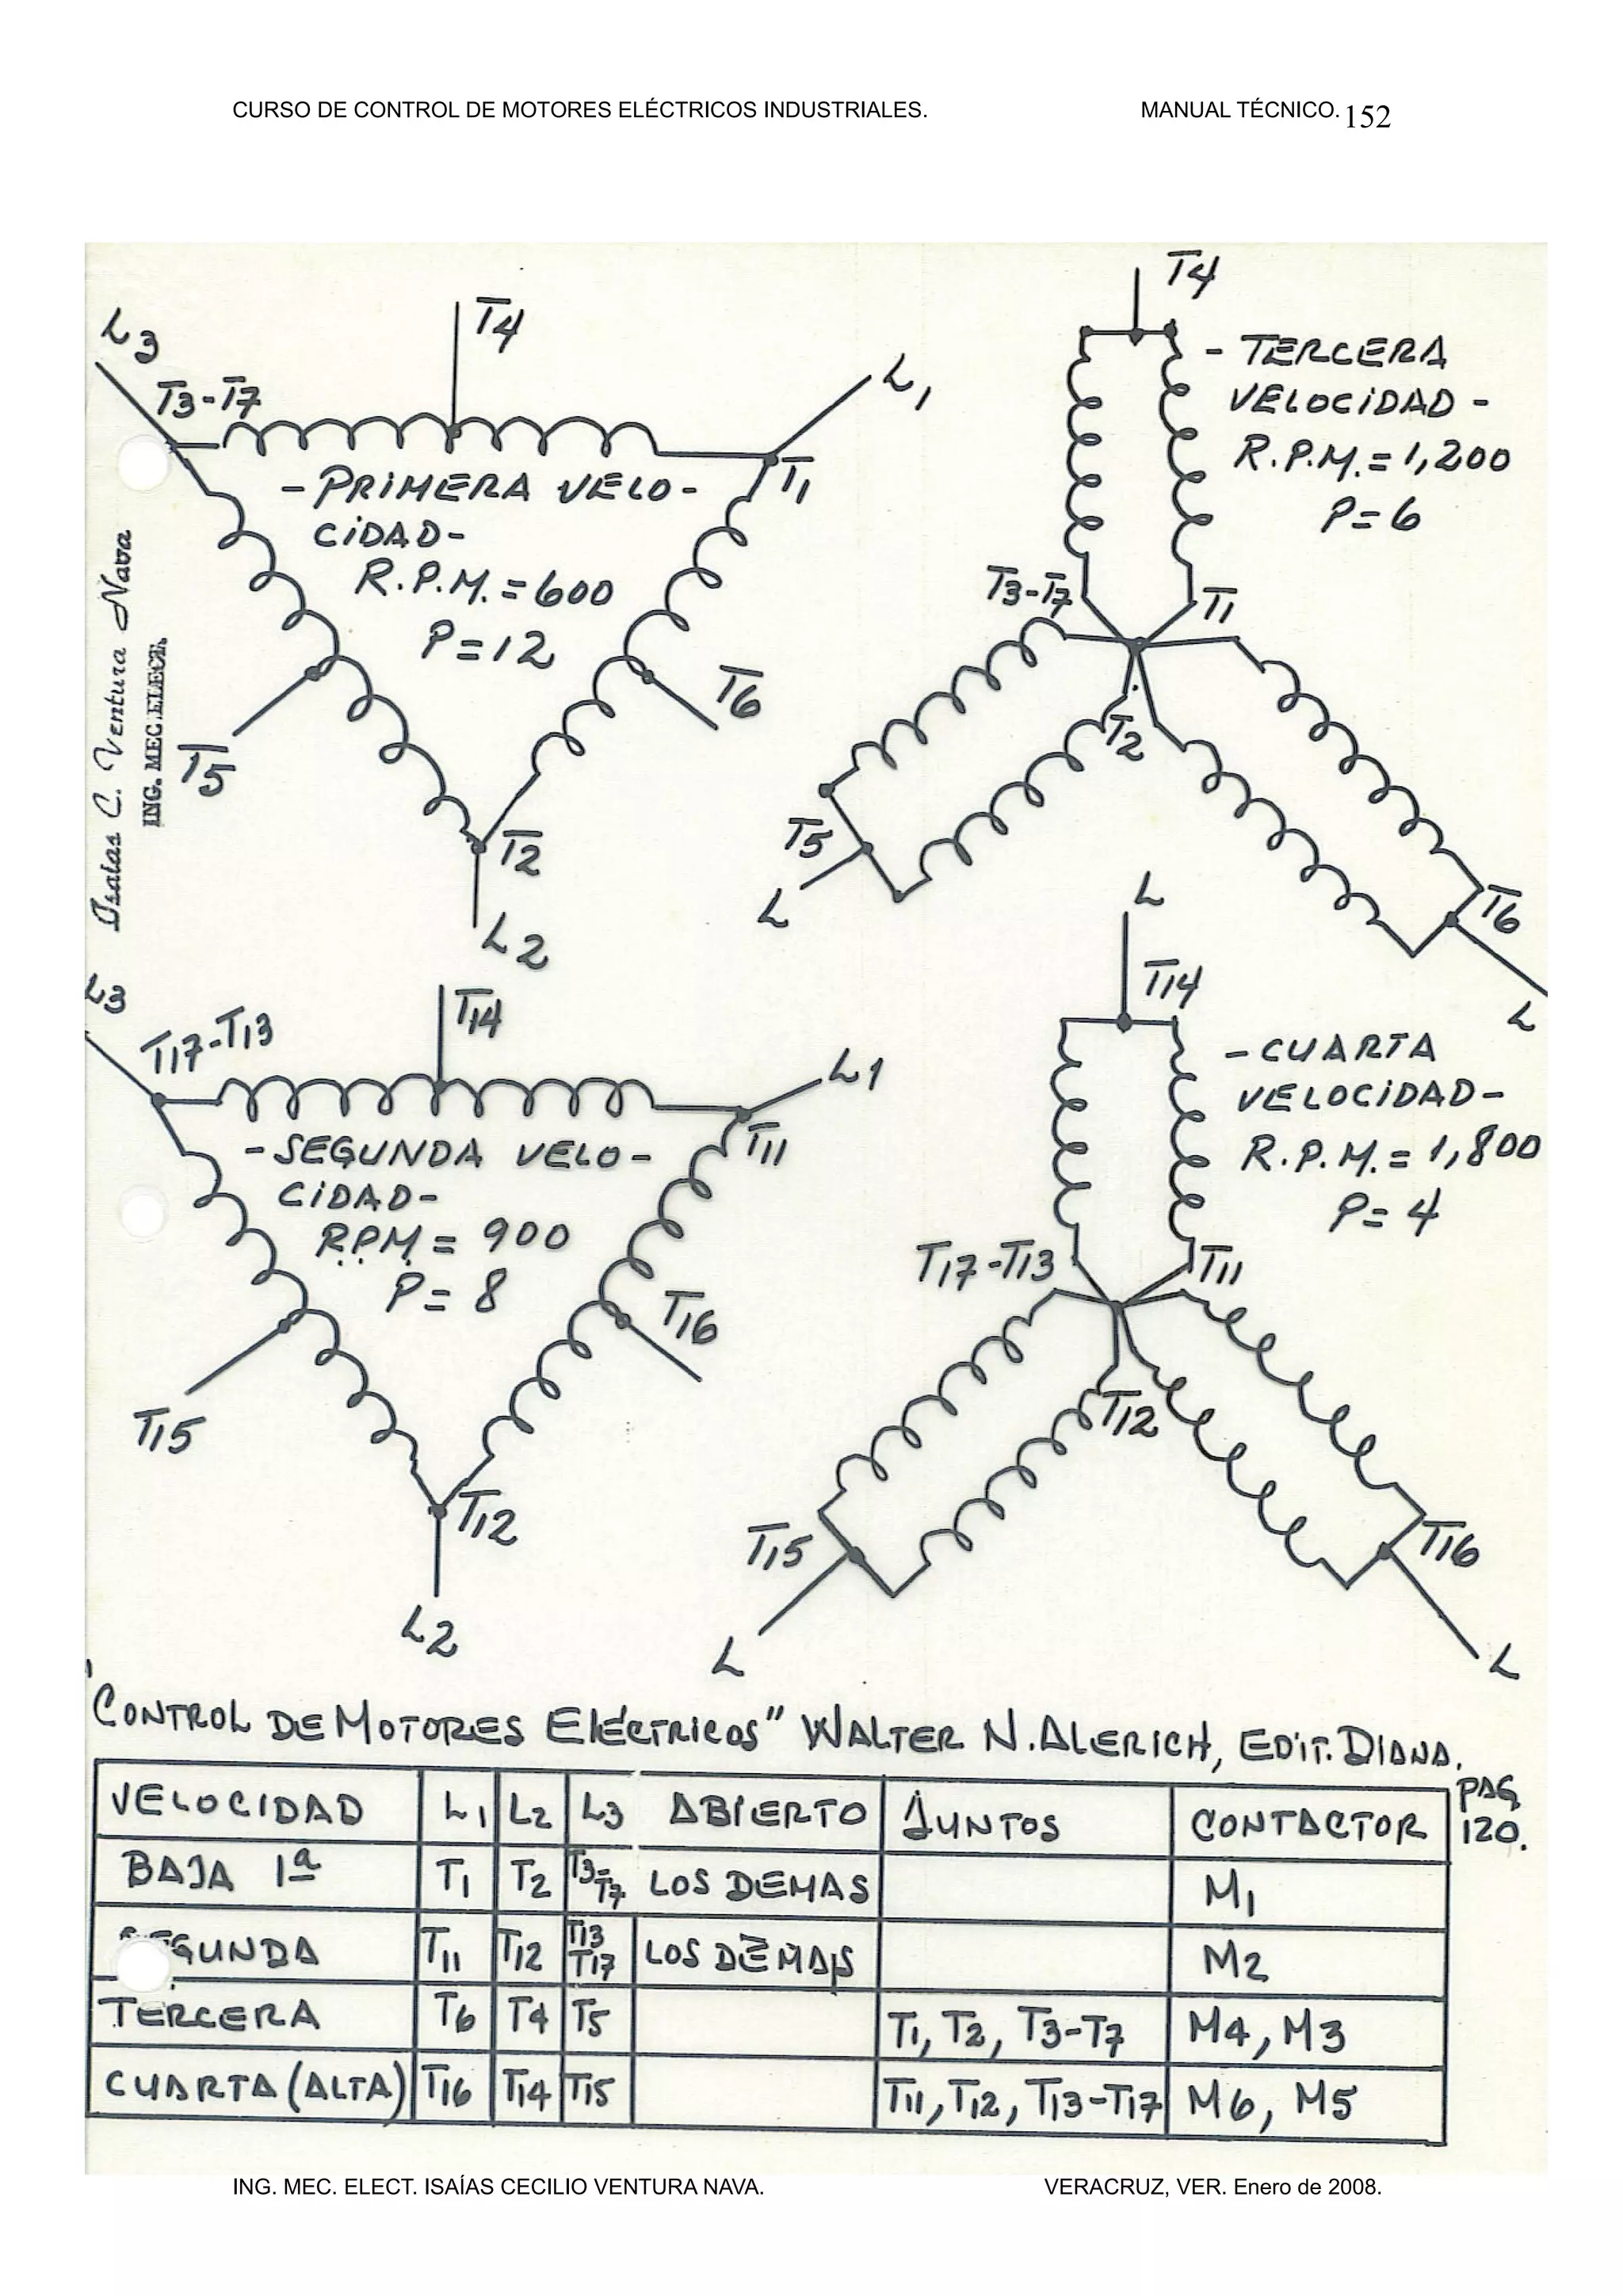 CURSO DE CONTROL DE MOTORES ELÉCTRICOS INDUSTRIALES. MANUAL TÉCNICO. 152
L3
T3-T7
T4
L1
T1
-PRIMERA VELO-
CIDAD-
R.P.M.=600
P=12
T6
T5
T2
L2
Isaías C. Ventura Nava
ING. MEC. ELECT.
T4
-TERCERA
VELOCIDAD-
R.P.M.=1,200
P=6
T3-T7
T1
T2
T5
L
T6
L
L3
T17-T13
T14
L1
T11
-SEGUNDA VELO-
CIDAD-
R.P.M.=900
P=8
T16
T15
T12
L2
L
T14
-CUARTA
VELOCIDAD-
R.P.M.=1,800
P=4
T17-T13
T11
T12
T15
L
T16
L
"CONTROL DE MOTORES ELÉCTRICOS" WALTER N. ALERICH, EDIT. DIANA.
PAG
120.
VELOCIDAD L1 L2 L3 ABIERTO JUNTOS CONTACTOR
BAJA 1ª T1 T2 T3-T7 LOS DEMAS M1
SEGUNDA T11 T12 T13 T17 LOS DEMAS M2
TERCERA T6 T4 T5 T1, T2, T3-T7 M4, M3
CUARTA (ALTA) T16 T14 T15 T11, T12, T13-T17 M6, M5
ING. MEC. ELECT. ISAÍAS CECILIO VENTURA NAVA. VERACRUZ, VER. Enero de 2008.